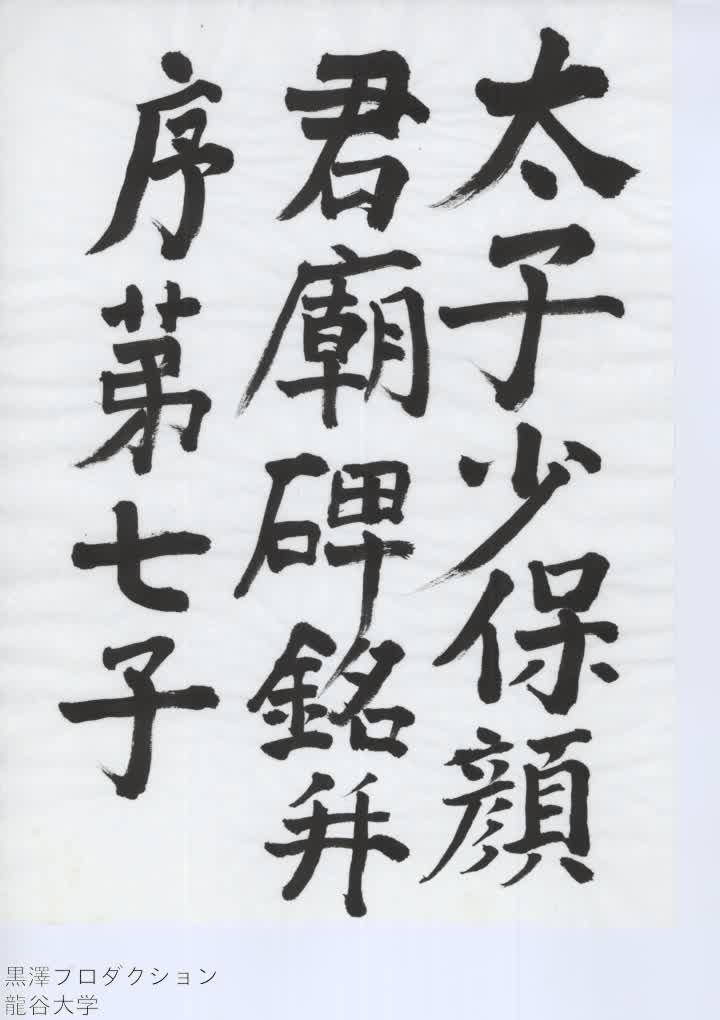 太子少保顔
君廟碑銘并
序第七子
黒澤プロダクション
龍谷大学